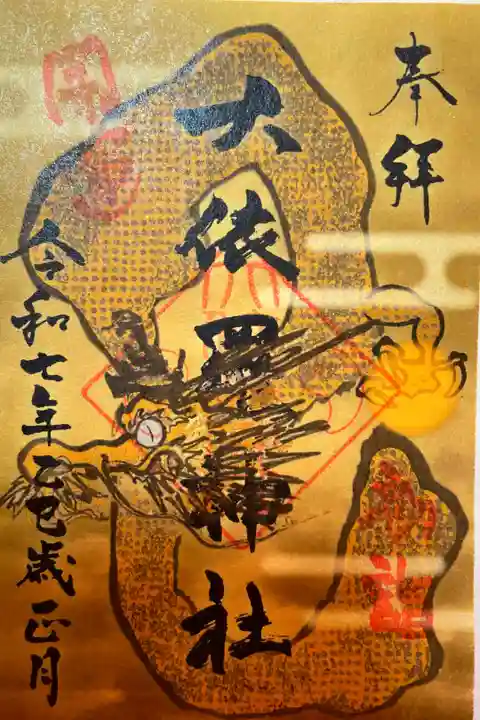 奉拝
大依羅神社
令和七年乙巳歳正月